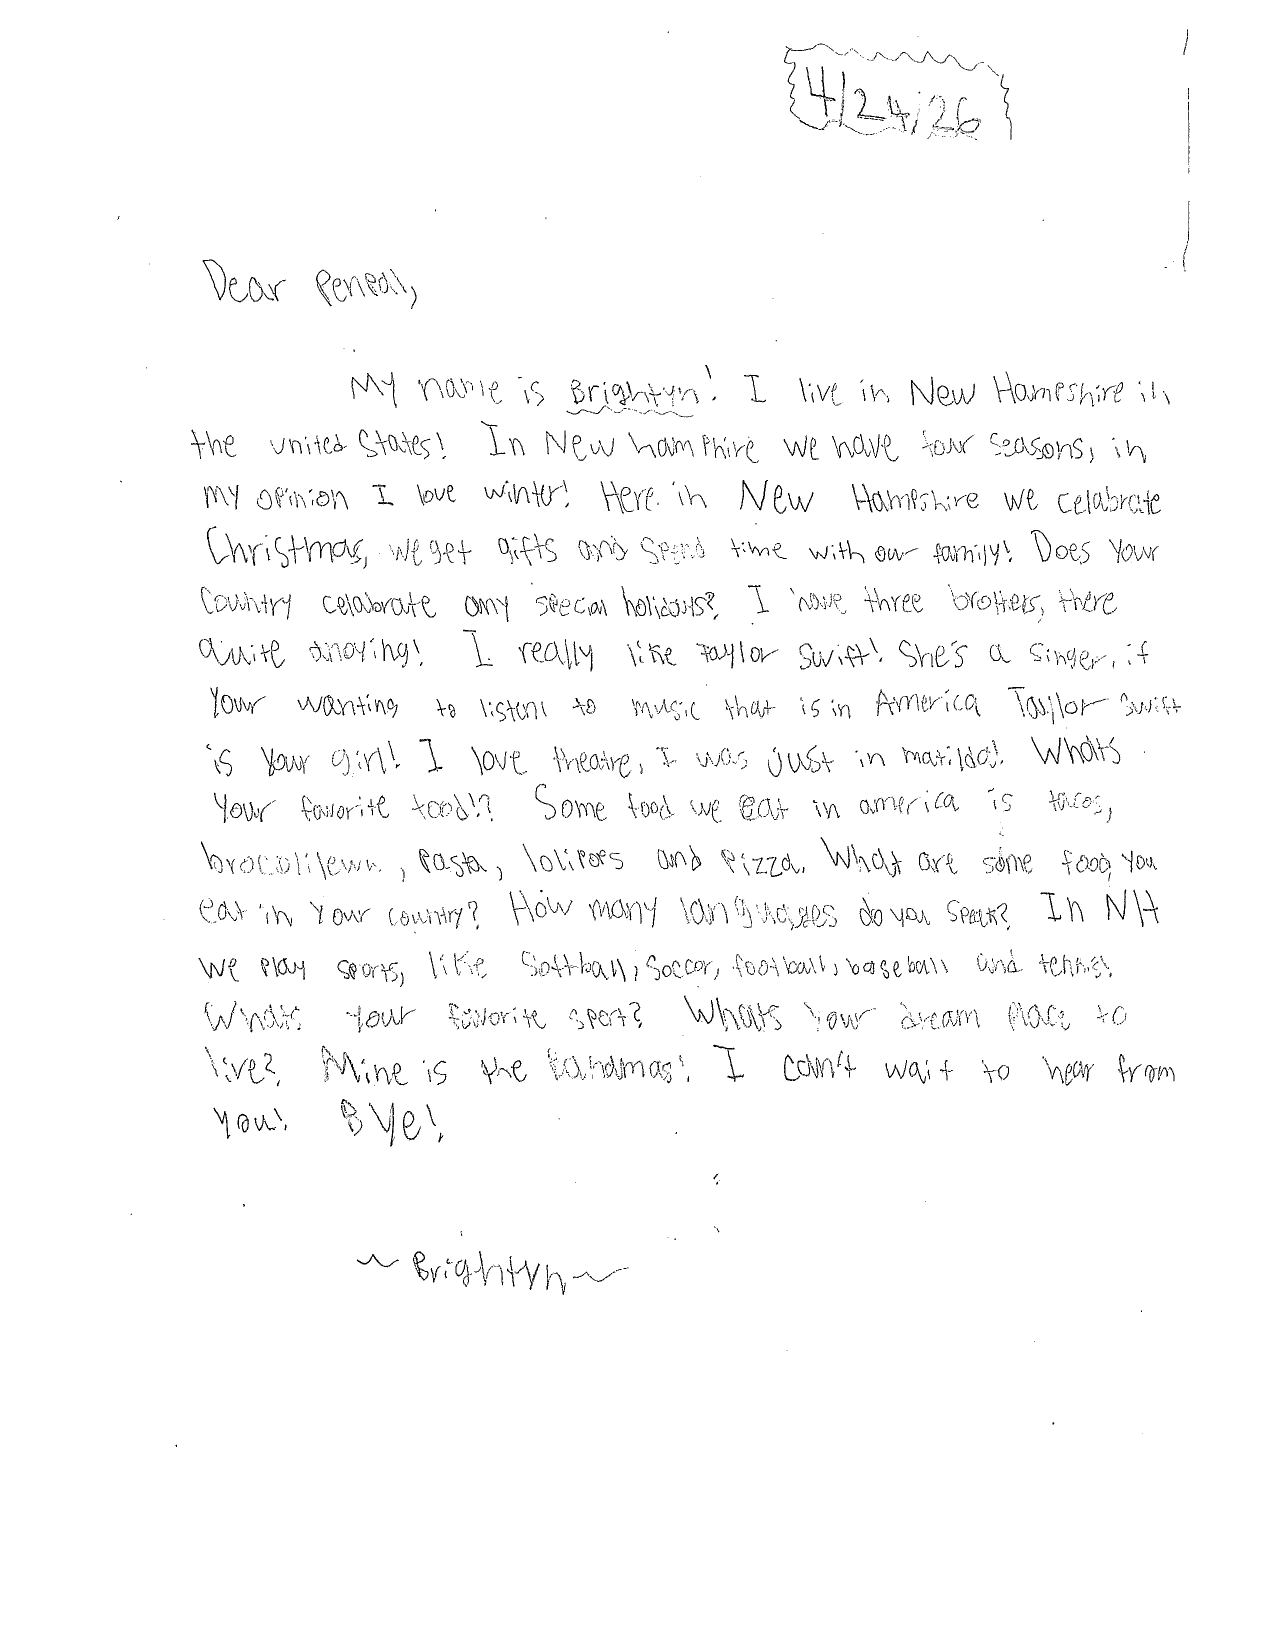 4/24/26
Dear Peneal,
My name is Brightyn! I live in New Hampeshire in
the united States! In New hampshire we have four seasons, in
my opinion I love winter! Here in New Hampeshire we celabrate
Christmas, we get gifts and spend time with our family! Does your
Country celabrate any special holidays? I have three brothers, there
quite anoying! I really like Taylor Swift! She's a singer, if
Your wanting to listen to music that is in America Taylor Swift
is your girl! I love theatre, I was just in matilda! Whats
your favorite food!? Some food we eat in america is tacos,
, Pasta, lolipops and pizza. What are some food you
eat in your country? How many languages do you speak? In NH
we play sports, like Softball, Soccer, football, baseball and tennis!
Whats your favorite sport? Whats your dream place to
live? Mine is the bahamas! I can't wait to hear from
you! Bye!
~Brightyn~